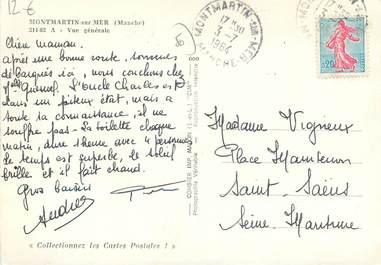 12 €
MONTMARTIN-sur-MER (Manche)
214-82 A - Vue générale
MONTMARTIN-SUR-MER
17H30
3
1960
MANCHE
0,20
Chère maman.
Après une bonne route, sommes
débarqués ici, nous couchons chez
Melle Quesnel. L'oncle Charles est
dans un piteux état, mais a
toute sa connaissance, il ne
souffre pas. La toilette chaque
matin, dure 1 heure avec 4 personnes
le temps est superbe, le soleil
brille et il fait chaud.
Gros baisers
Andrée
Madame Vigneux
Place Maintenon
Saint-Saëns
Seine-Maritime
COMBIER IMP. MACON (S.-et-L.) "CIM"
Photographie Véritable
« Collectionnez les Cartes Postales ! »